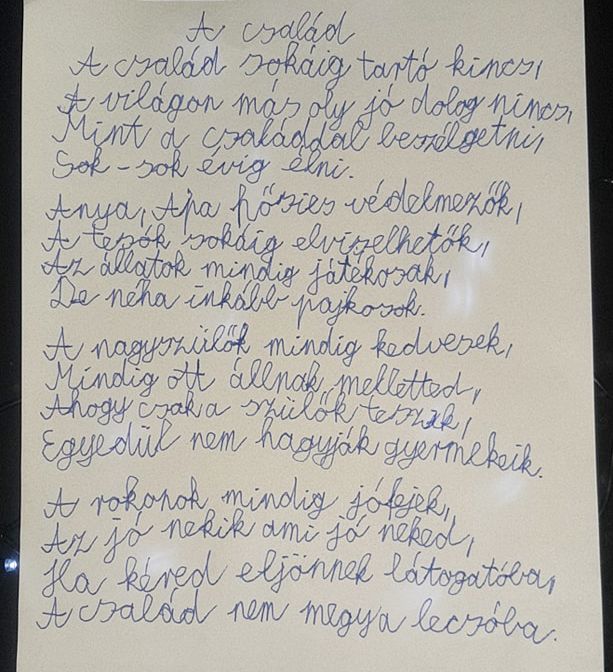 A család
A család sokáig tartó kincs,
A világon más oly jó dolog nincs,
Mint a családdal beszélgetni,
Sok-sok évig élni.
Anya, Apa hősies védelmezők,
A tesók sokáig elviselhetők,
Az állatok mindig játékosak,
De néha inkább pajkosok.
A nagyszülők mindig kedvesek,
Mindig ott állnak melletted,
Ahogy csak a szülők teszik,
Egyedül nem hagyják gyermekeik.
A rokonok mindig jófejek,
Az jó nekik ami jó neked,
Ha kéred eljönnek látogatóba,
A család nem megy a lecsóba.